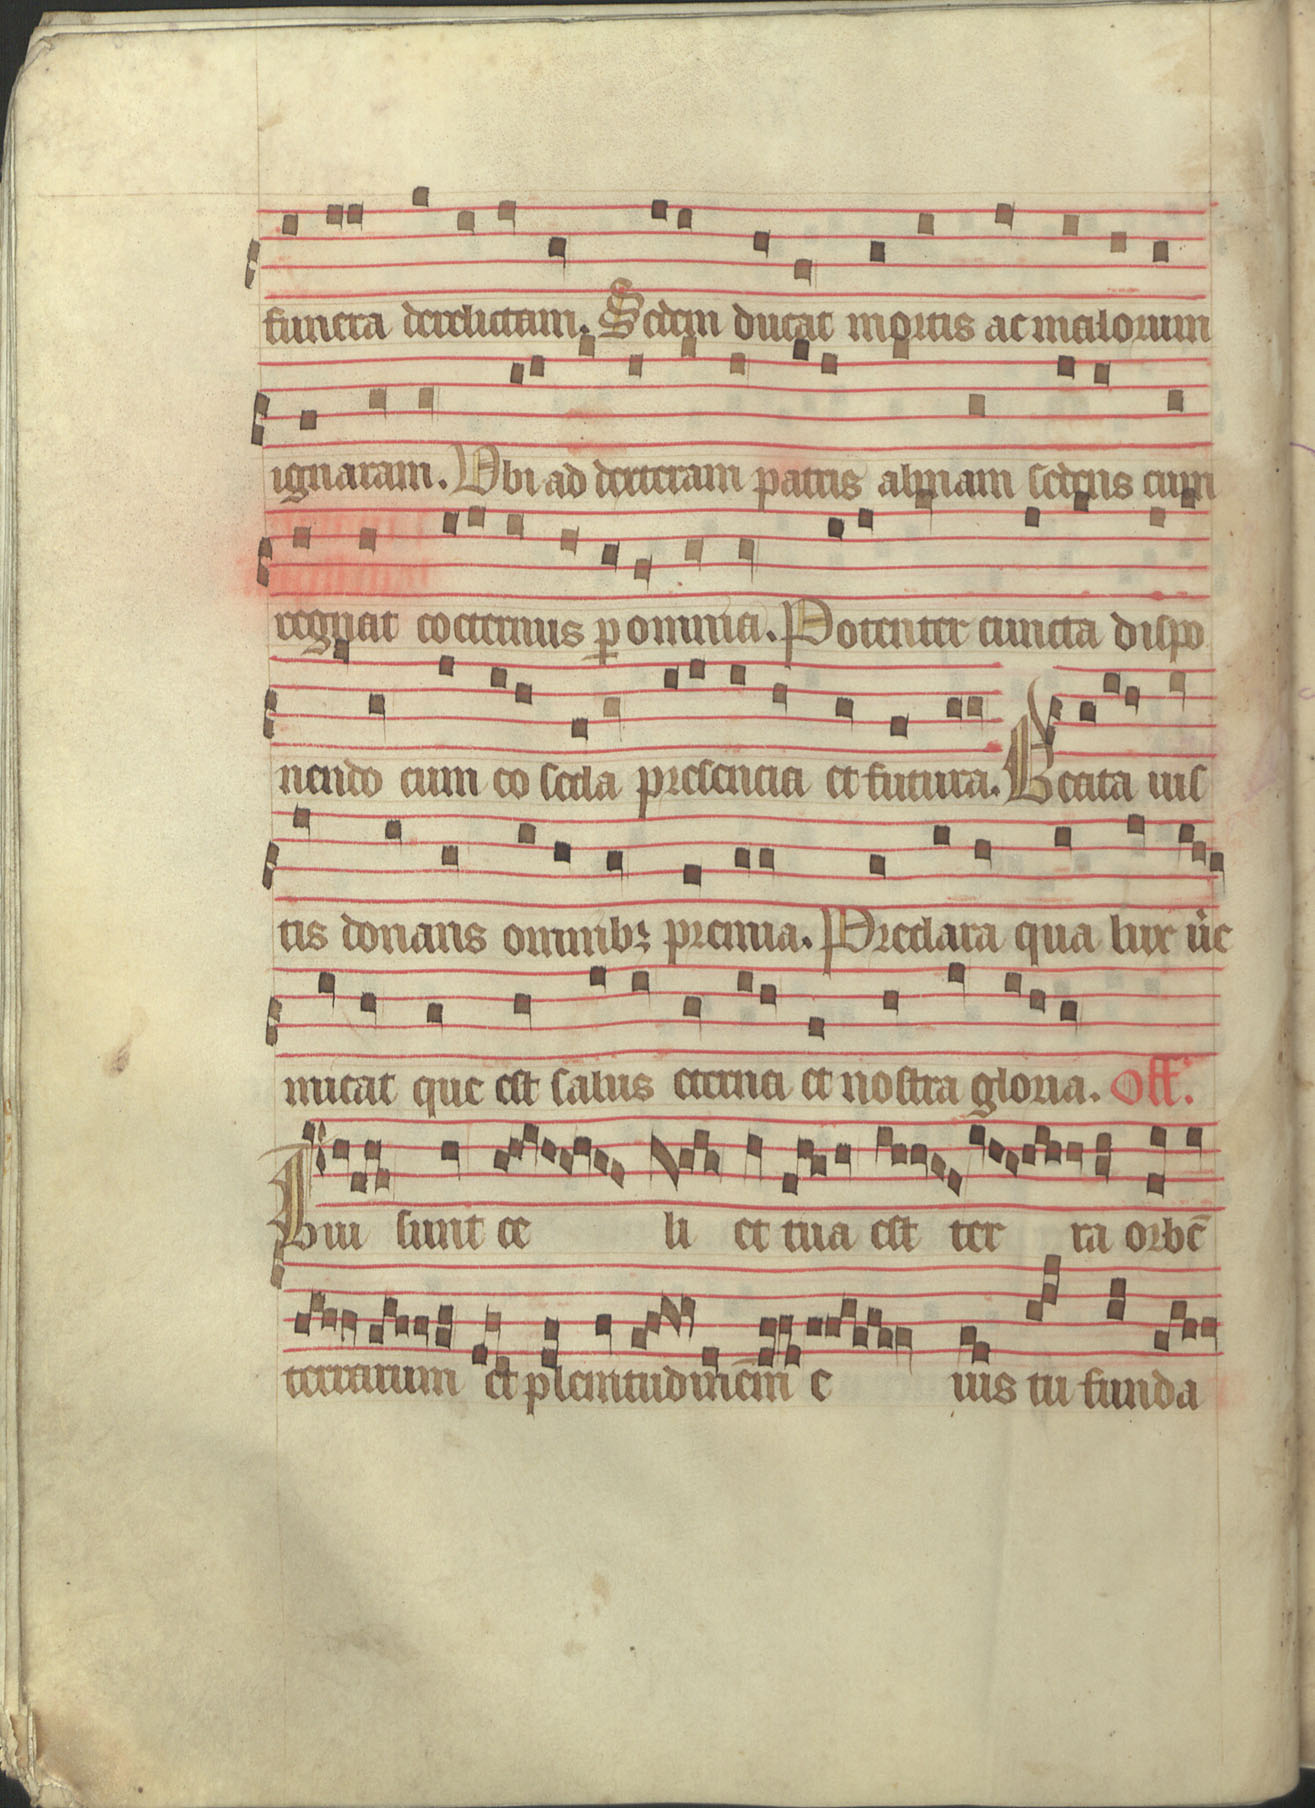 funera derelictam. Sedem ducat mortis ac malorum
ignaram. Vbi ad dexteram patris almam sedens cum
regnat coeternus p omnia. Potenter cuncta dispo
nendo cum eo secla presencia et futura. Beata uis
tis donans omnibꝫ premia. Preclara qua lux
mitat que est salus eterna et nostra gloria. Off.
sunt ce li et tua est ter ra orbē
terrarum et plenitudinem e ius tu funda